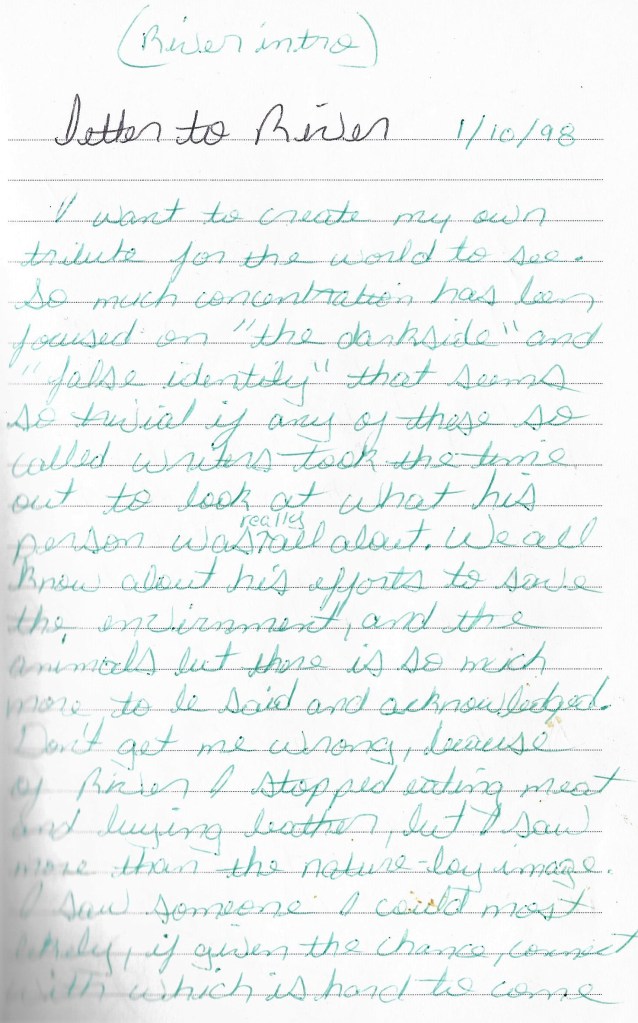 (River intro)
letter to River 1/10/98
I want to create my own
tribute for the world to see.
So much concentration has been
focused on "the darkside" and
"false identity" that seems
so trivial if any of these so
called writers took the time
out to look at what his
really
person was all about. We all
know about his efforts to save
the envirnment, and the
animals but there is so much
more to be said and acknowledged.
Don't get me wrong, because
of River I stopped eating meat
and buying leather, but I saw
more than the nature-boy image.
I saw someone I could most
likely, if given the chance, connect
with which is hard to come